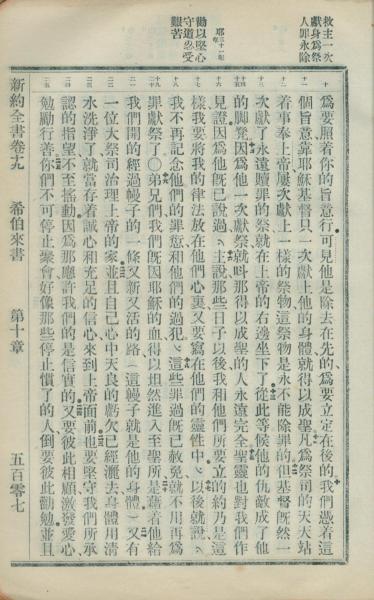 救主一次
獻身為祭
人罪永除
勸以堅心
守道忍受
艱苦
為要照着你的旨意行可見他是除去在先的為要立定在後的我們憑着這
個旨意靠耶穌基督只一次獻上他的身體就得以成聖凡為祭司的天天站
着事奉上帝屢次獻上一樣的祭物這祭物是永不能除罪的但基督旣然一
次獻了永遠贖罪的祭就在上帝的右邊坐下了從此等候他的仇敵成了他
的脚凳因為他一次獻祭就呌那得以成聖的人永遠完全聖靈也對我們作
見證因為他旣已說過主說那些日子以後我和他們所要立的約乃是這
樣我要將我的律法放在他們心裏又要寫在他們的靈性中以後就說
我不再記念他們的罪愆和他們的過犯這些罪過旣已赦免就不用再為
罪獻祭了○弟兄們我們旣因耶穌的血得以坦然進入至聖所是藉着他給
我們開的經過幔子的一條又新又活的路（這幔子就是他的身體）又有
一位大祭司治理上帝的家並且自己心中天良的虧欠已經灑去身體用清
水洗淨了就當存着誠心和充足的信心來到上帝面前也要堅守我們所承
認的指望不至搖動因為那應許我們的是信實的又要彼此相顧激發愛心
勉勵行善你們不可停止聚會好像那些停止慣了的人倒要彼此勸勉並且
新約全書卷十九 希伯來書 第十章 五百零七